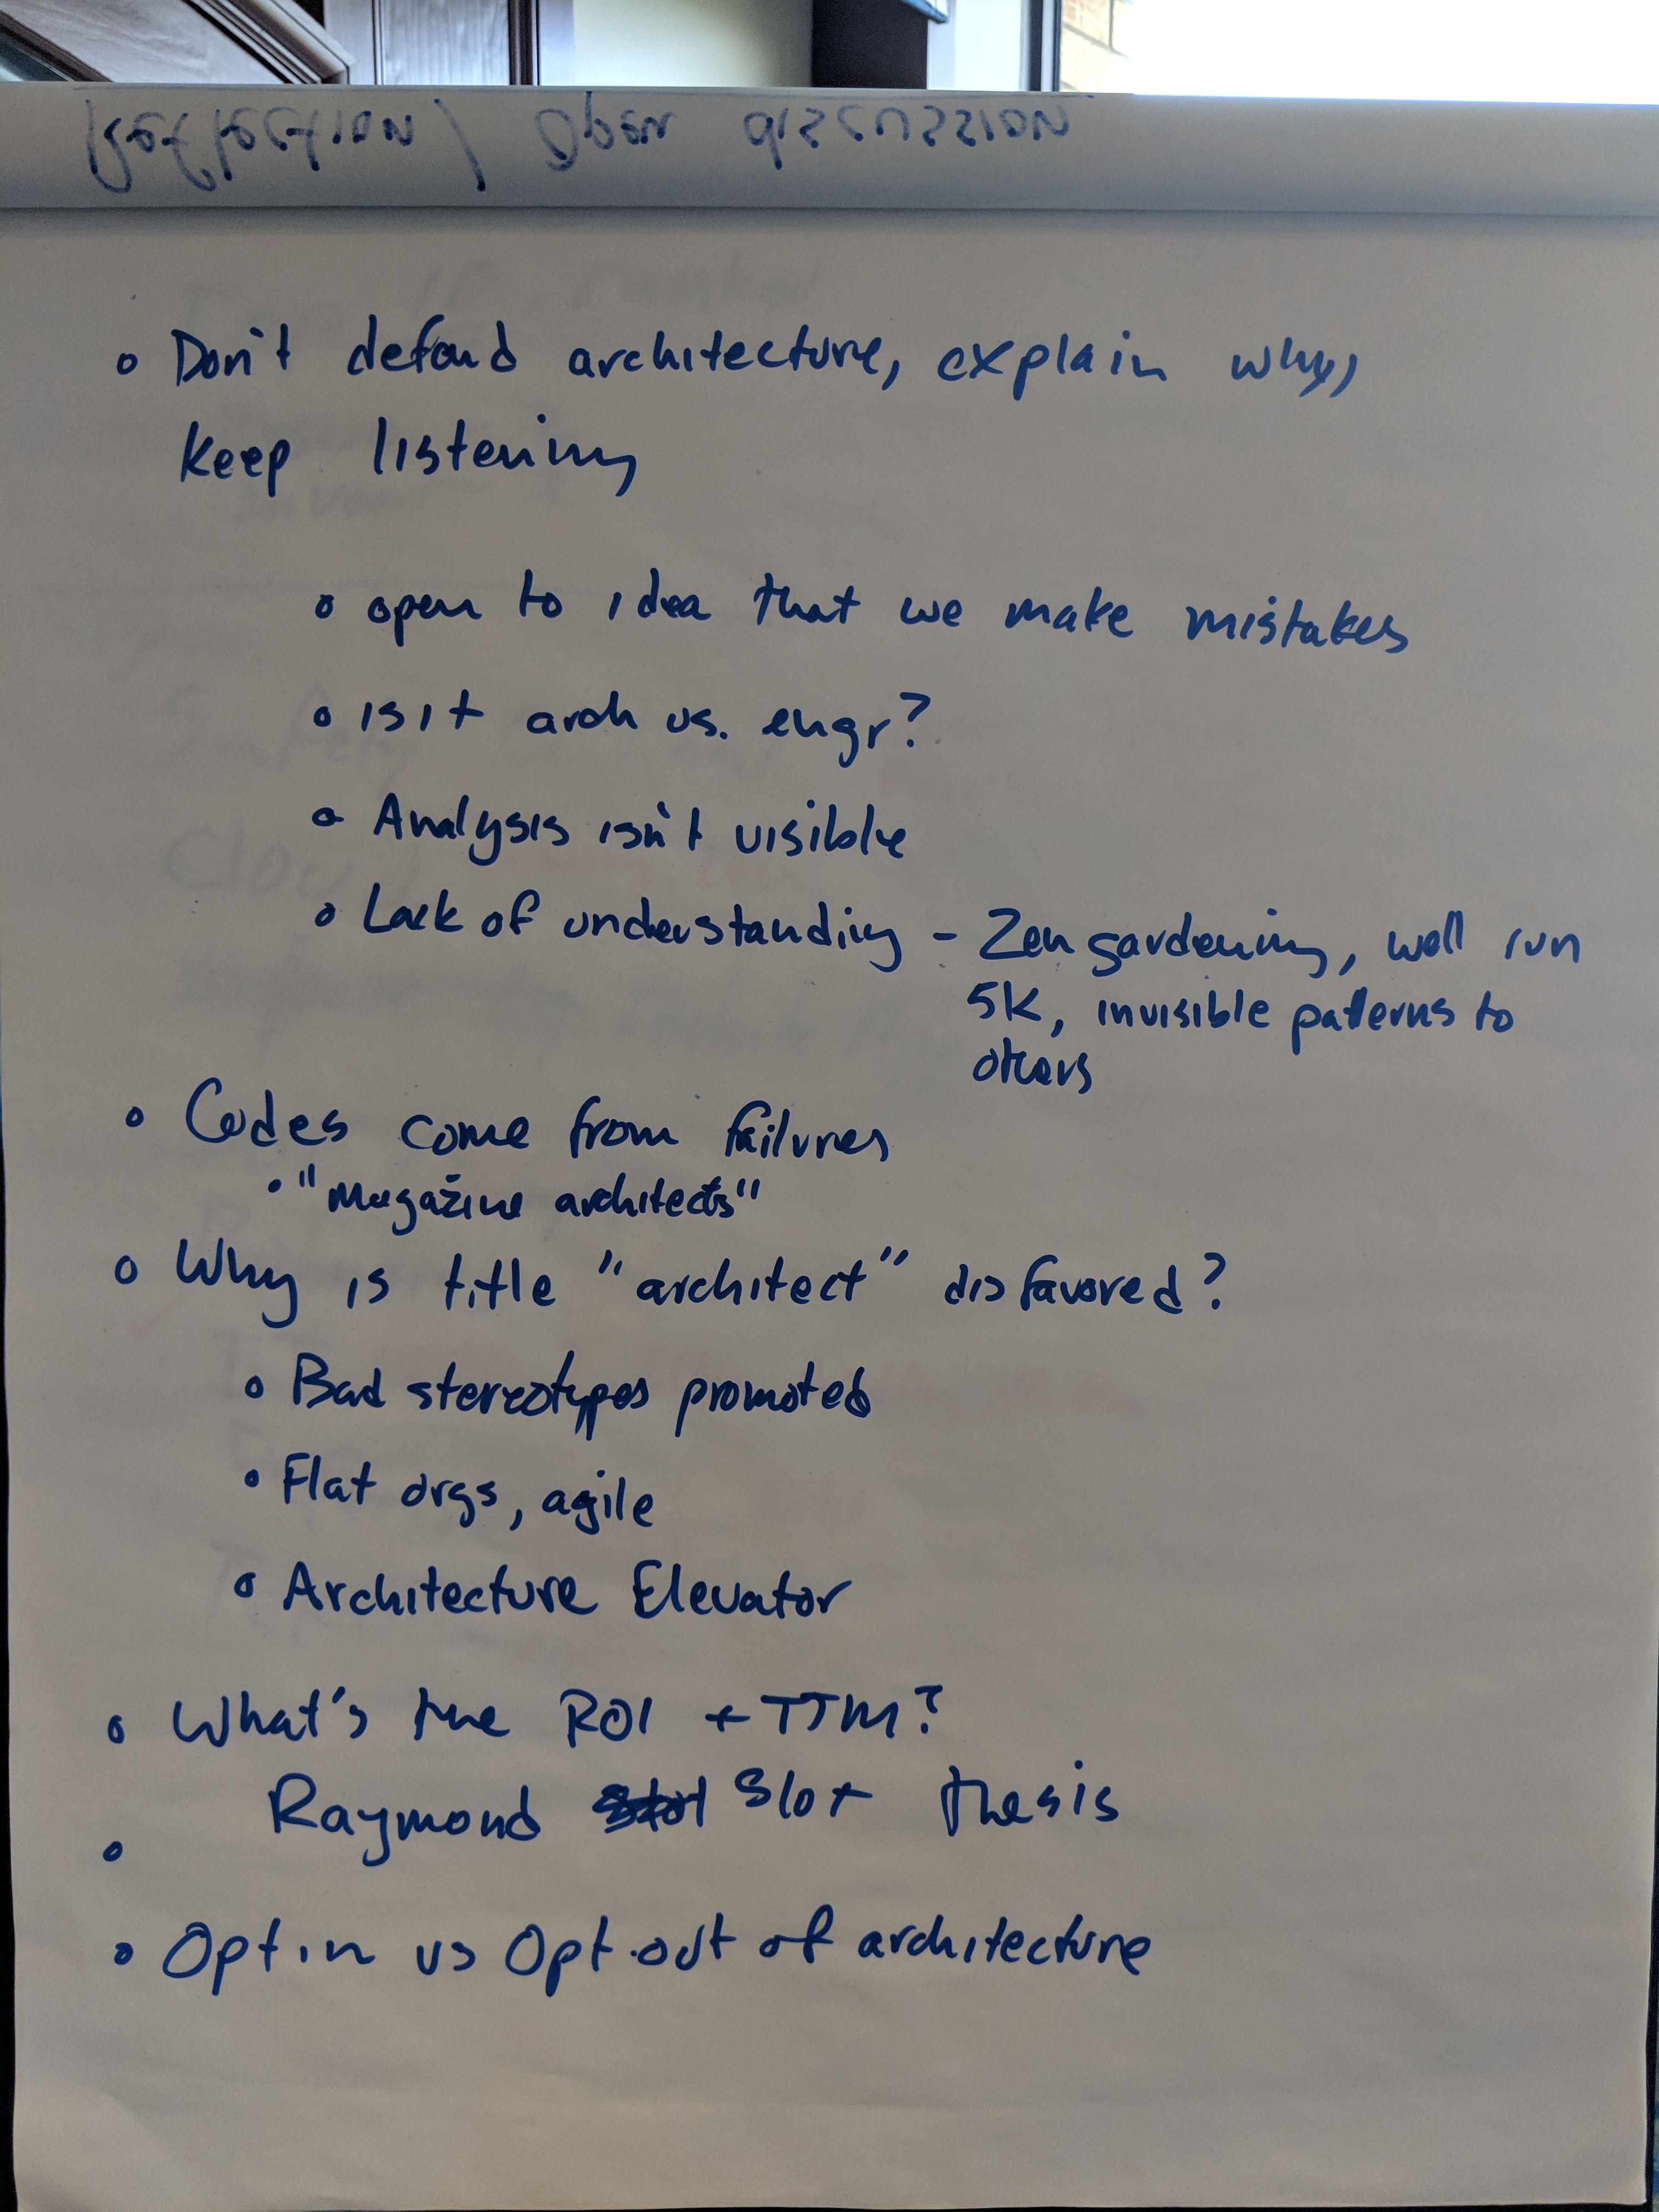 Reflection / Open discussion
• Don't defend architecture, explain why,
keep listening
• open to idea that we make mistakes
• is it arch vs. engr?
• Analysis isn't visible
• Lack of understanding - Zen gardening, well run
5K, invisible patterns to
others
• Codes come from failures
• "Magazine architects"
• Why is title "architect" disfavored?
• Bad stereotypes promoted
• Flat orgs, agile
• Architecture Elevator
• What's the ROI + TTM?
Raymond Slot thesis
•
• Opt in vs Opt-out of architecture